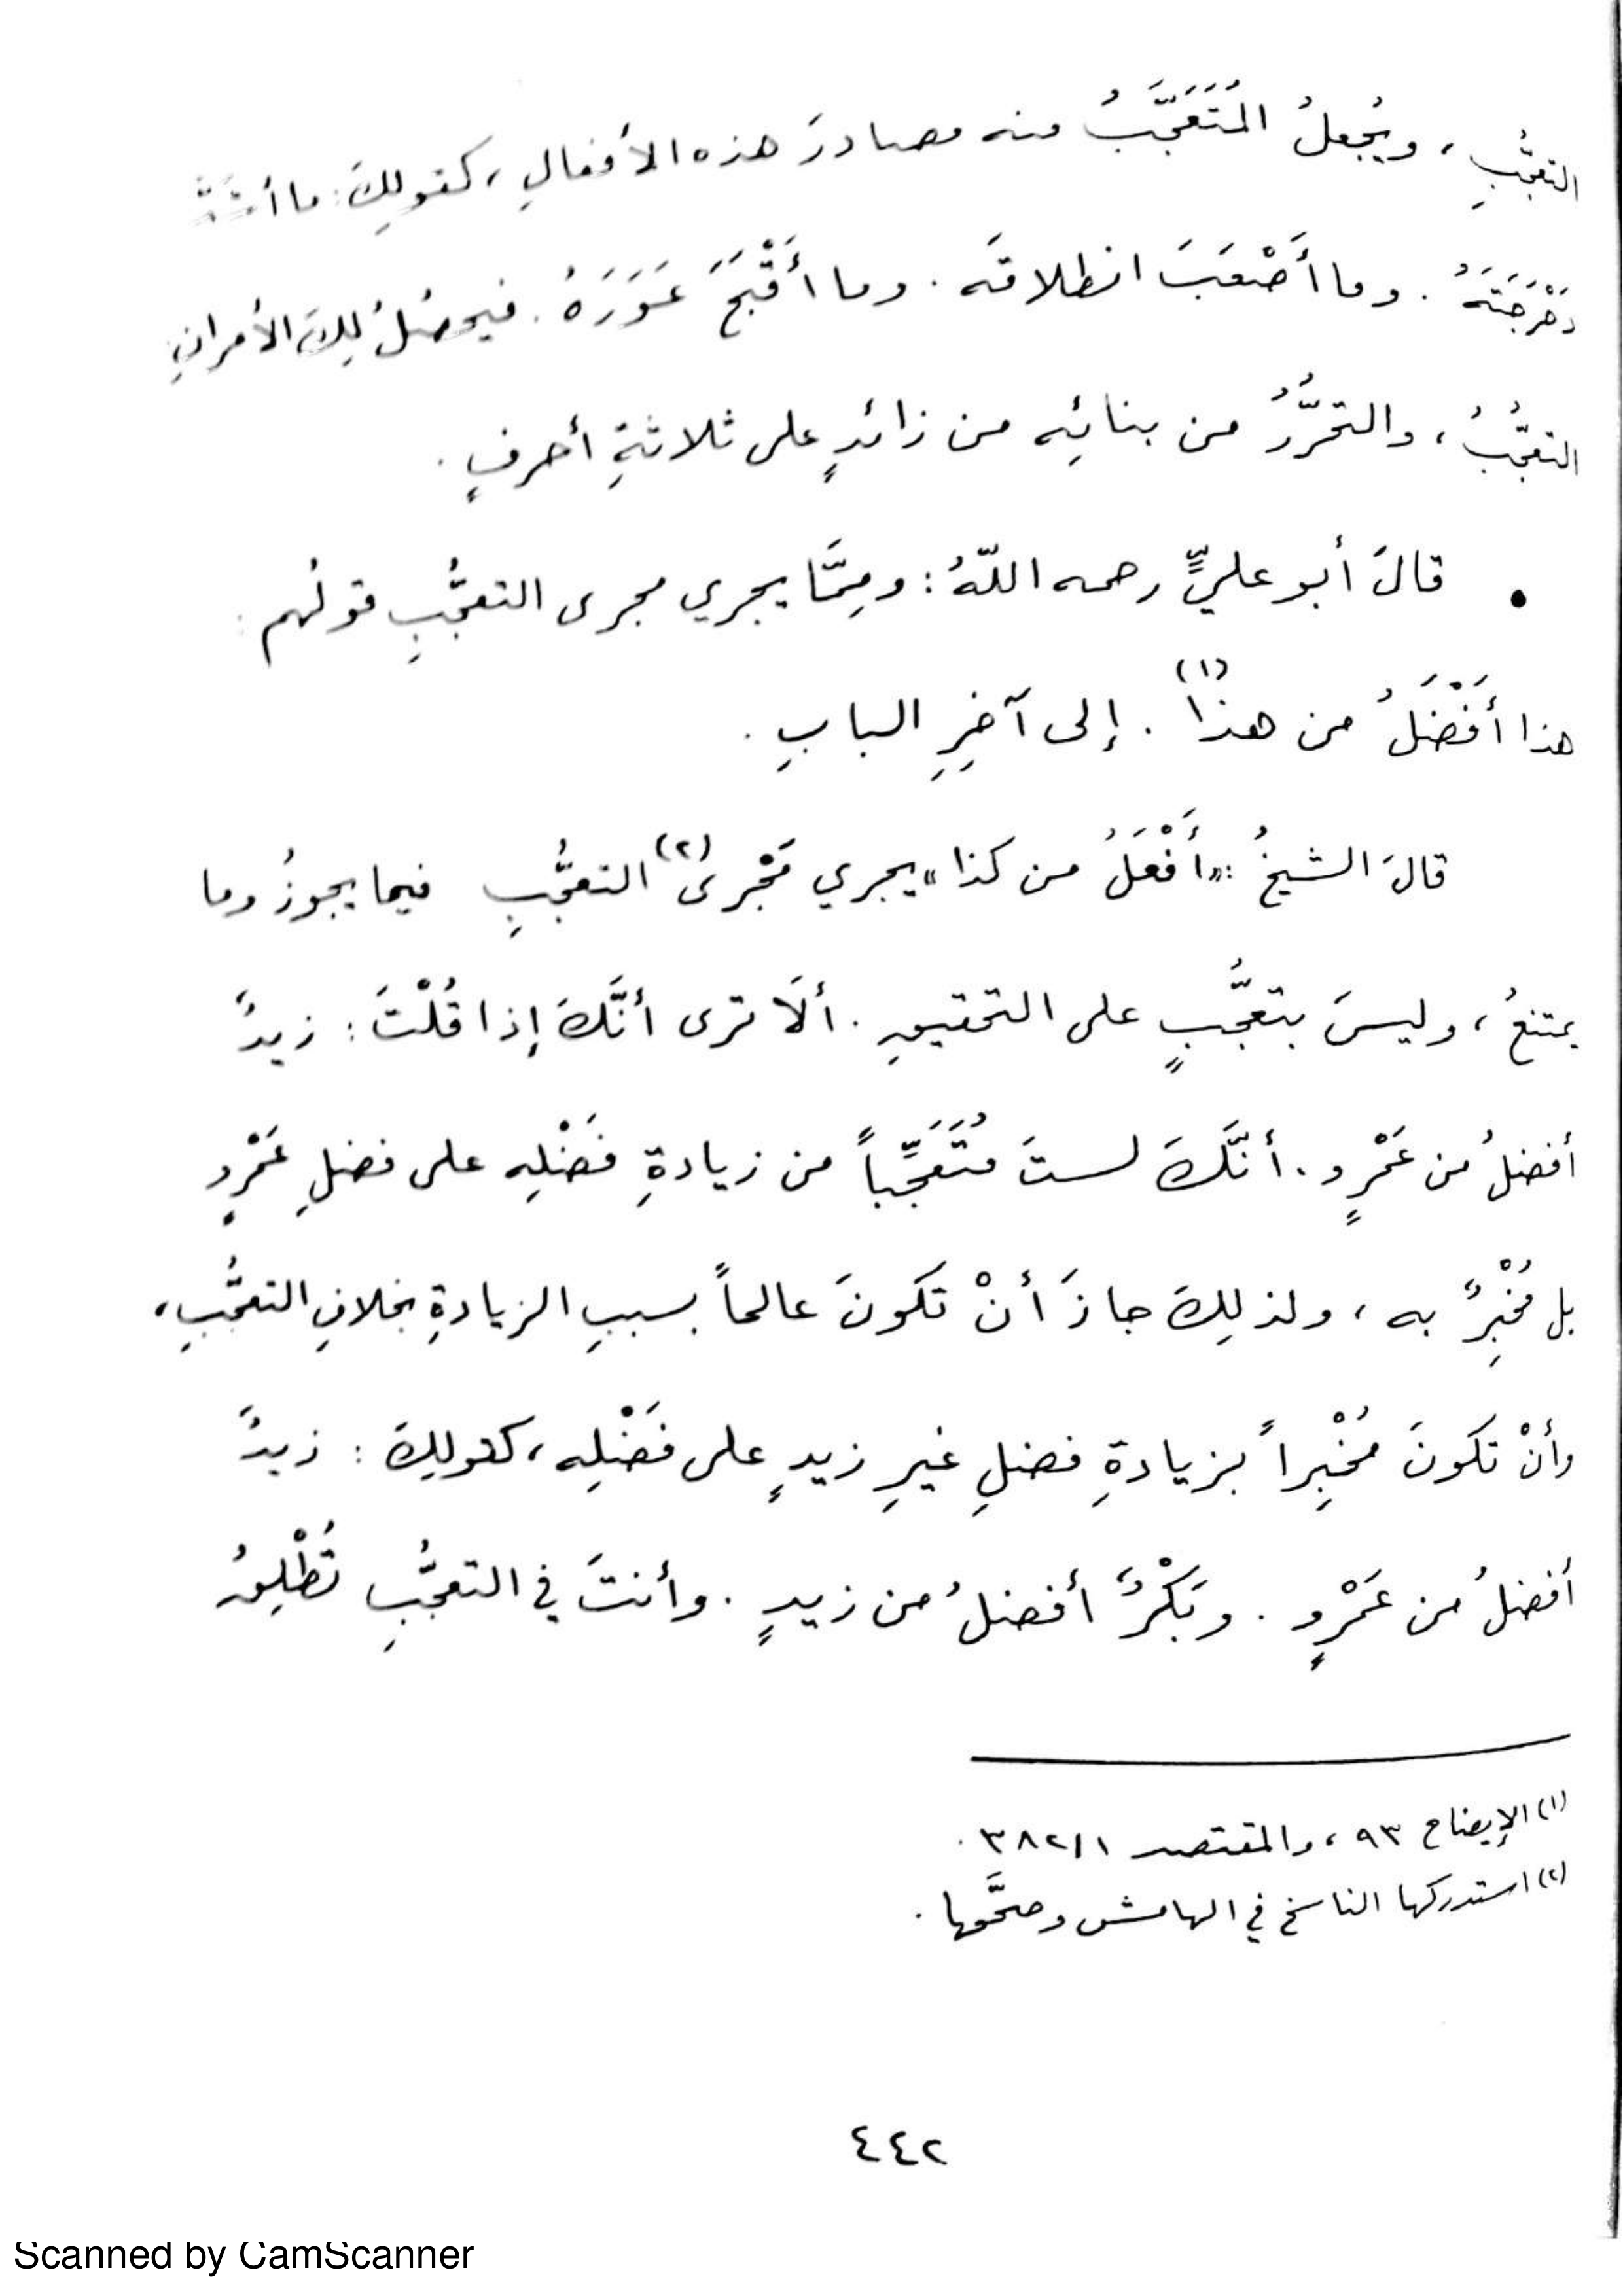 التعجُّبِ ، ويُجعلُ المُتَعَجَّبُ منه مصادرَ هذه الأفعالِ ، كقولِكَ : ما أَشَدَّ
دَحْرَجَتَهُ . وما أَصْعَبَ انطلاقَه . وما أَقْبَحَ عَوَرَهُ . فيحصُلُ لكَ الأمرانِ
التعجُّبُ ، والتحرُّزُ من بنائِه من زائدٍ على ثلاثةِ أحرفٍ .
• قالَ أبو عليٍّ رحمه اللّهُ : ومِمَّا يجري مجرى التعجُّبِ قولُهم :
هذا أَفْضَلُ من هذا (١) . إلى آخِرِ البابِ .
قالَ الشيخُ : «أَفْعَلُ من كذا» يجري مَجْرى (٢) التعجُّبِ فيما يجوزُ وما
يمتنعُ ، وليسَ بتعجُّبٍ على التحقيقِ . ألَا ترى أنَّكَ إذا قُلْتَ : زيدٌ
أفضلُ من عَمْرٍو . أنَّكَ لستَ مُتَعَجِّباً من زيادةِ فَضْلِه على فضلِ عَمْرٍو
بل مُخْبِرٌ به ، ولذلِكَ جازَ أنْ تكونَ عالماً بسببِ الزيادةِ بخلافِ التعجُّبِ ،
وأنْ تكونَ مُخْبِراً بزيادةِ فضلِ غيرِ زيدٍ على فَضْلِه ، كقولِكَ : زيدٌ
أفضلُ من عَمْرٍو . وبَكْرٌ أفضلُ من زيدٍ . وأنتَ في التعجُّبِ تُطْلِقُ
(١) الإيضاح ٩٣ ، والمقتصد ٣٨٢/١ .
(٢) استدركها الناسخ في الهامش وصحَّحها .
٤٤٢
Scanned by CamScanner